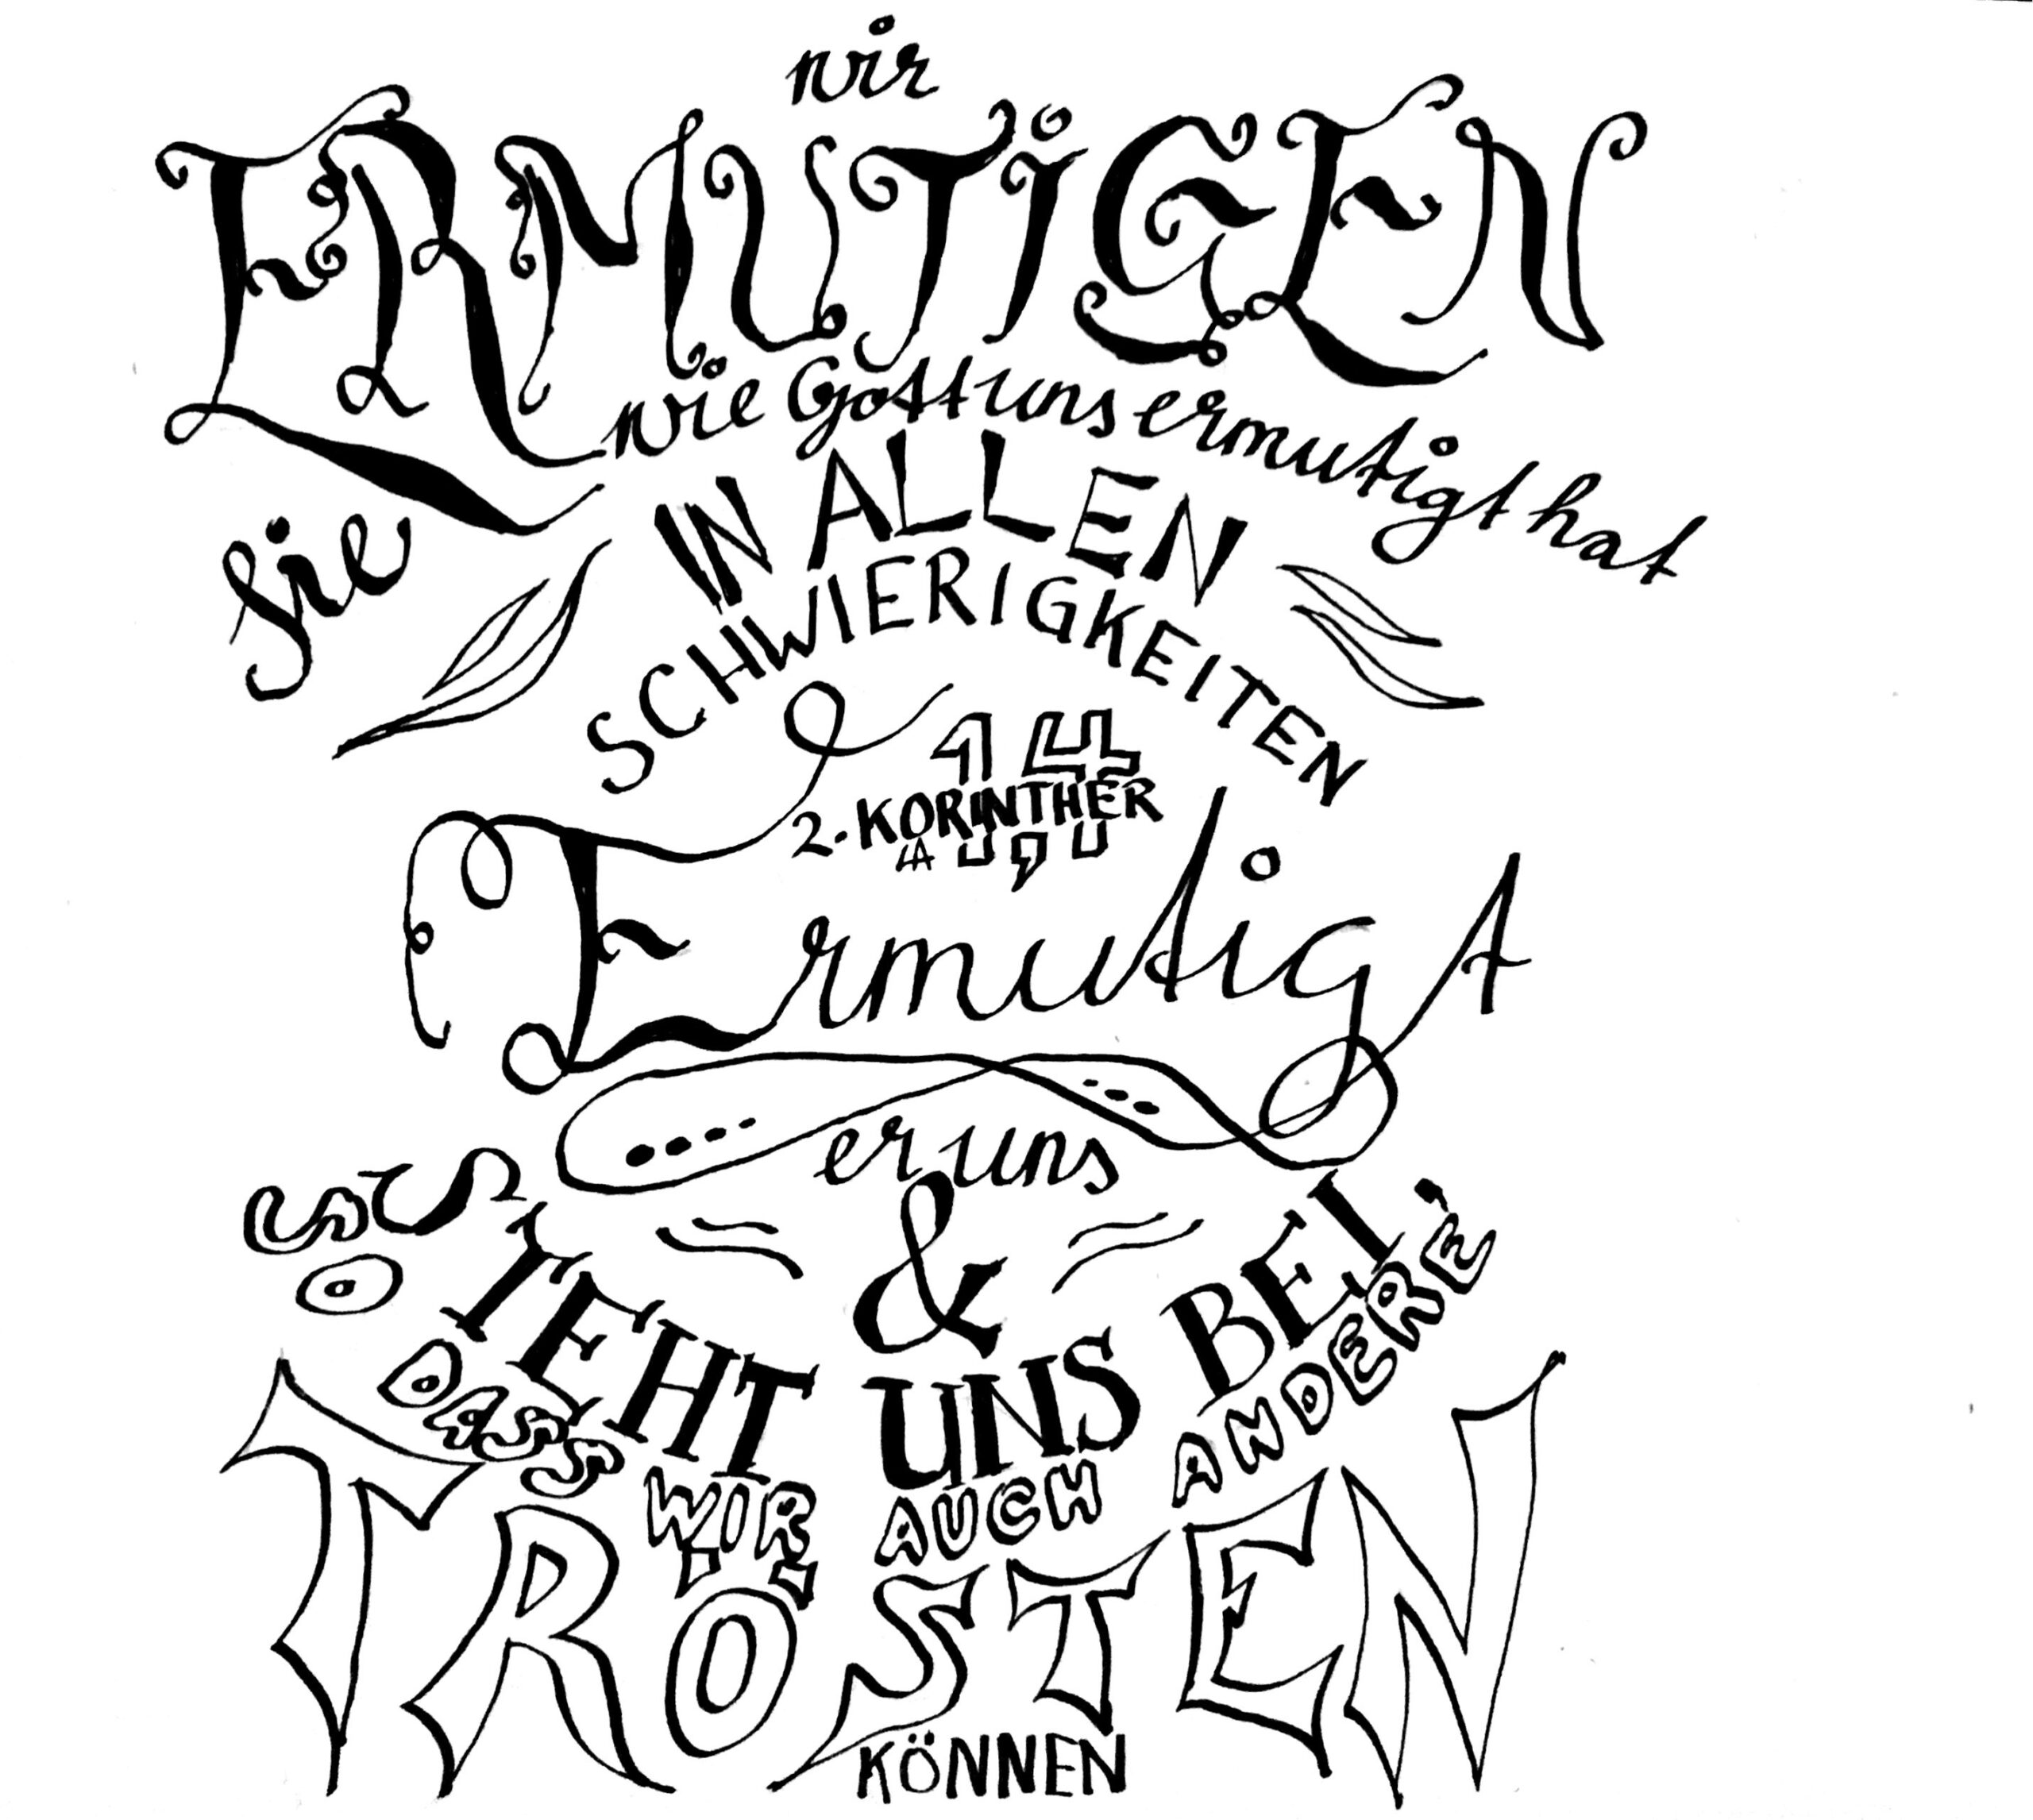 wir
ERMUTIGEN
sie
wie Gott uns ermutigt hat
IN ALLEN
SCHWIERIGKEITEN
2. KORINTHER
1,4
Ermutigt
er uns
&
STEHT UNS BEI
SO DASS WIR AUCH ANDERE
TRÖSTEN
KÖNNEN